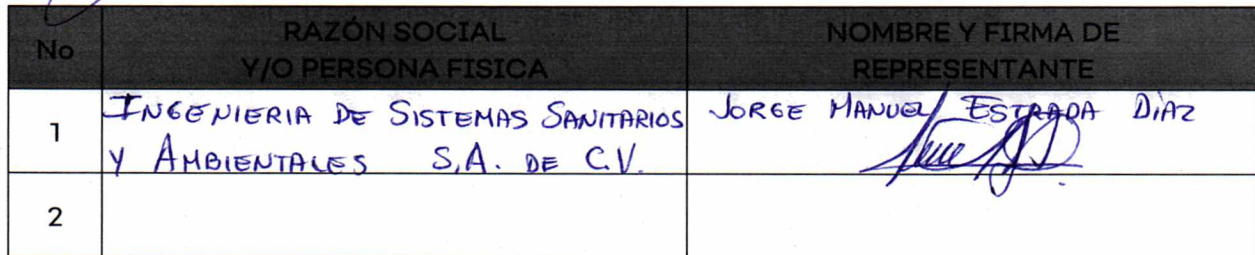 No
RAZÓN SOCIAL
Y/O PERSONA FISICA
NOMBRE Y FIRMA DE
REPRESENTANTE
1
INGENIERIA DE SISTEMAS SANITARIOS
Y AMBIENTALES S.A. DE C.V.
JORGE MANUEL ESTRADA DíAZ
2